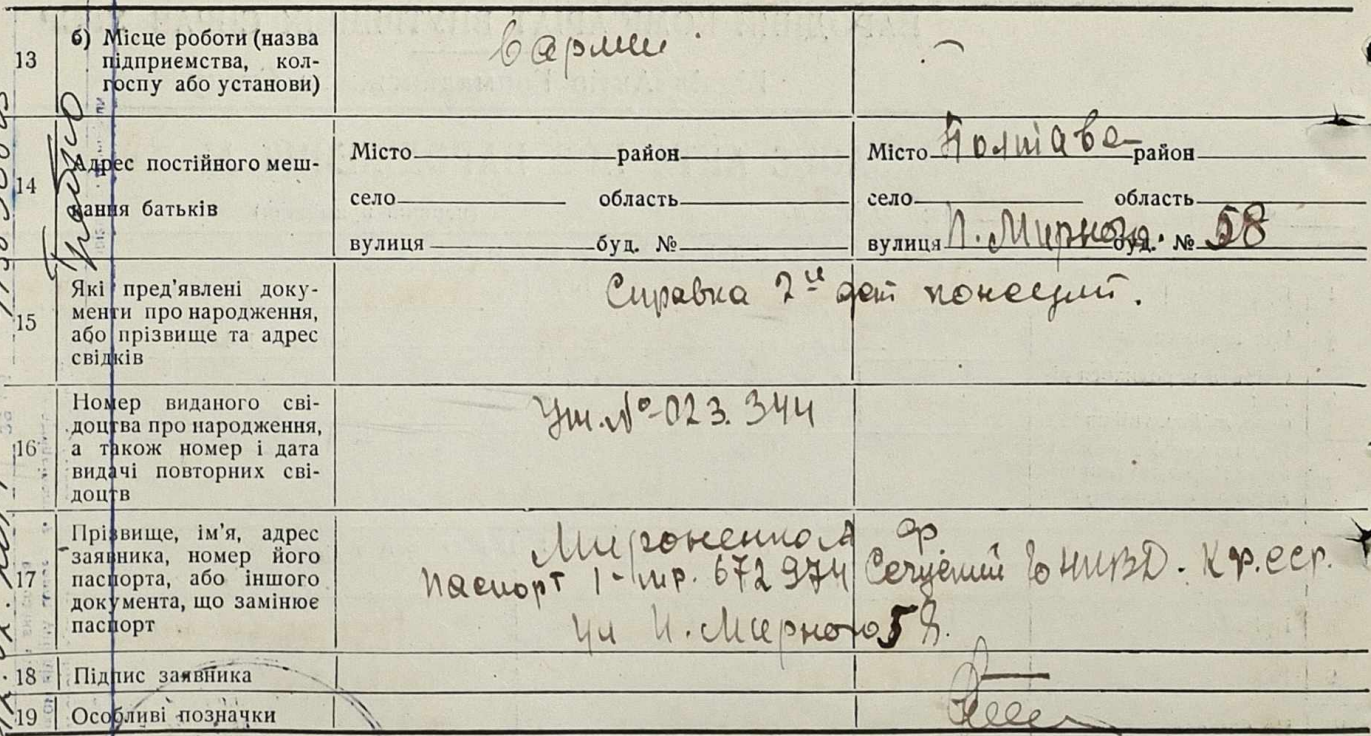 13 б) Місце роботи (назва
підприємства, кол-
госпу або установи)
в армии
14 Адрес постійного меш-
кання батьків
Місто район
село область
вулиця буд. №
Місто Полтава район
село область
вулиця П. Мирного буд. № 58
15 Які пред'явлені доку-
менти про народження,
або прізвище та адрес
свідків
Справка 2й
16 Номер виданого сві-
доцтва про народження,
а також номер і дата
видачі повторних сві-
доцтв
№ 023.344
17 Прізвище, ім'я, адрес
заявника, номер його
паспорта, або іншого
документа, що замінює
паспорт
Мироненко А Ф
паспорт 672974 НКВД. К р. сср.
ул П. Мирного 58.
18 Підпис заявника
19 Особливі позначки